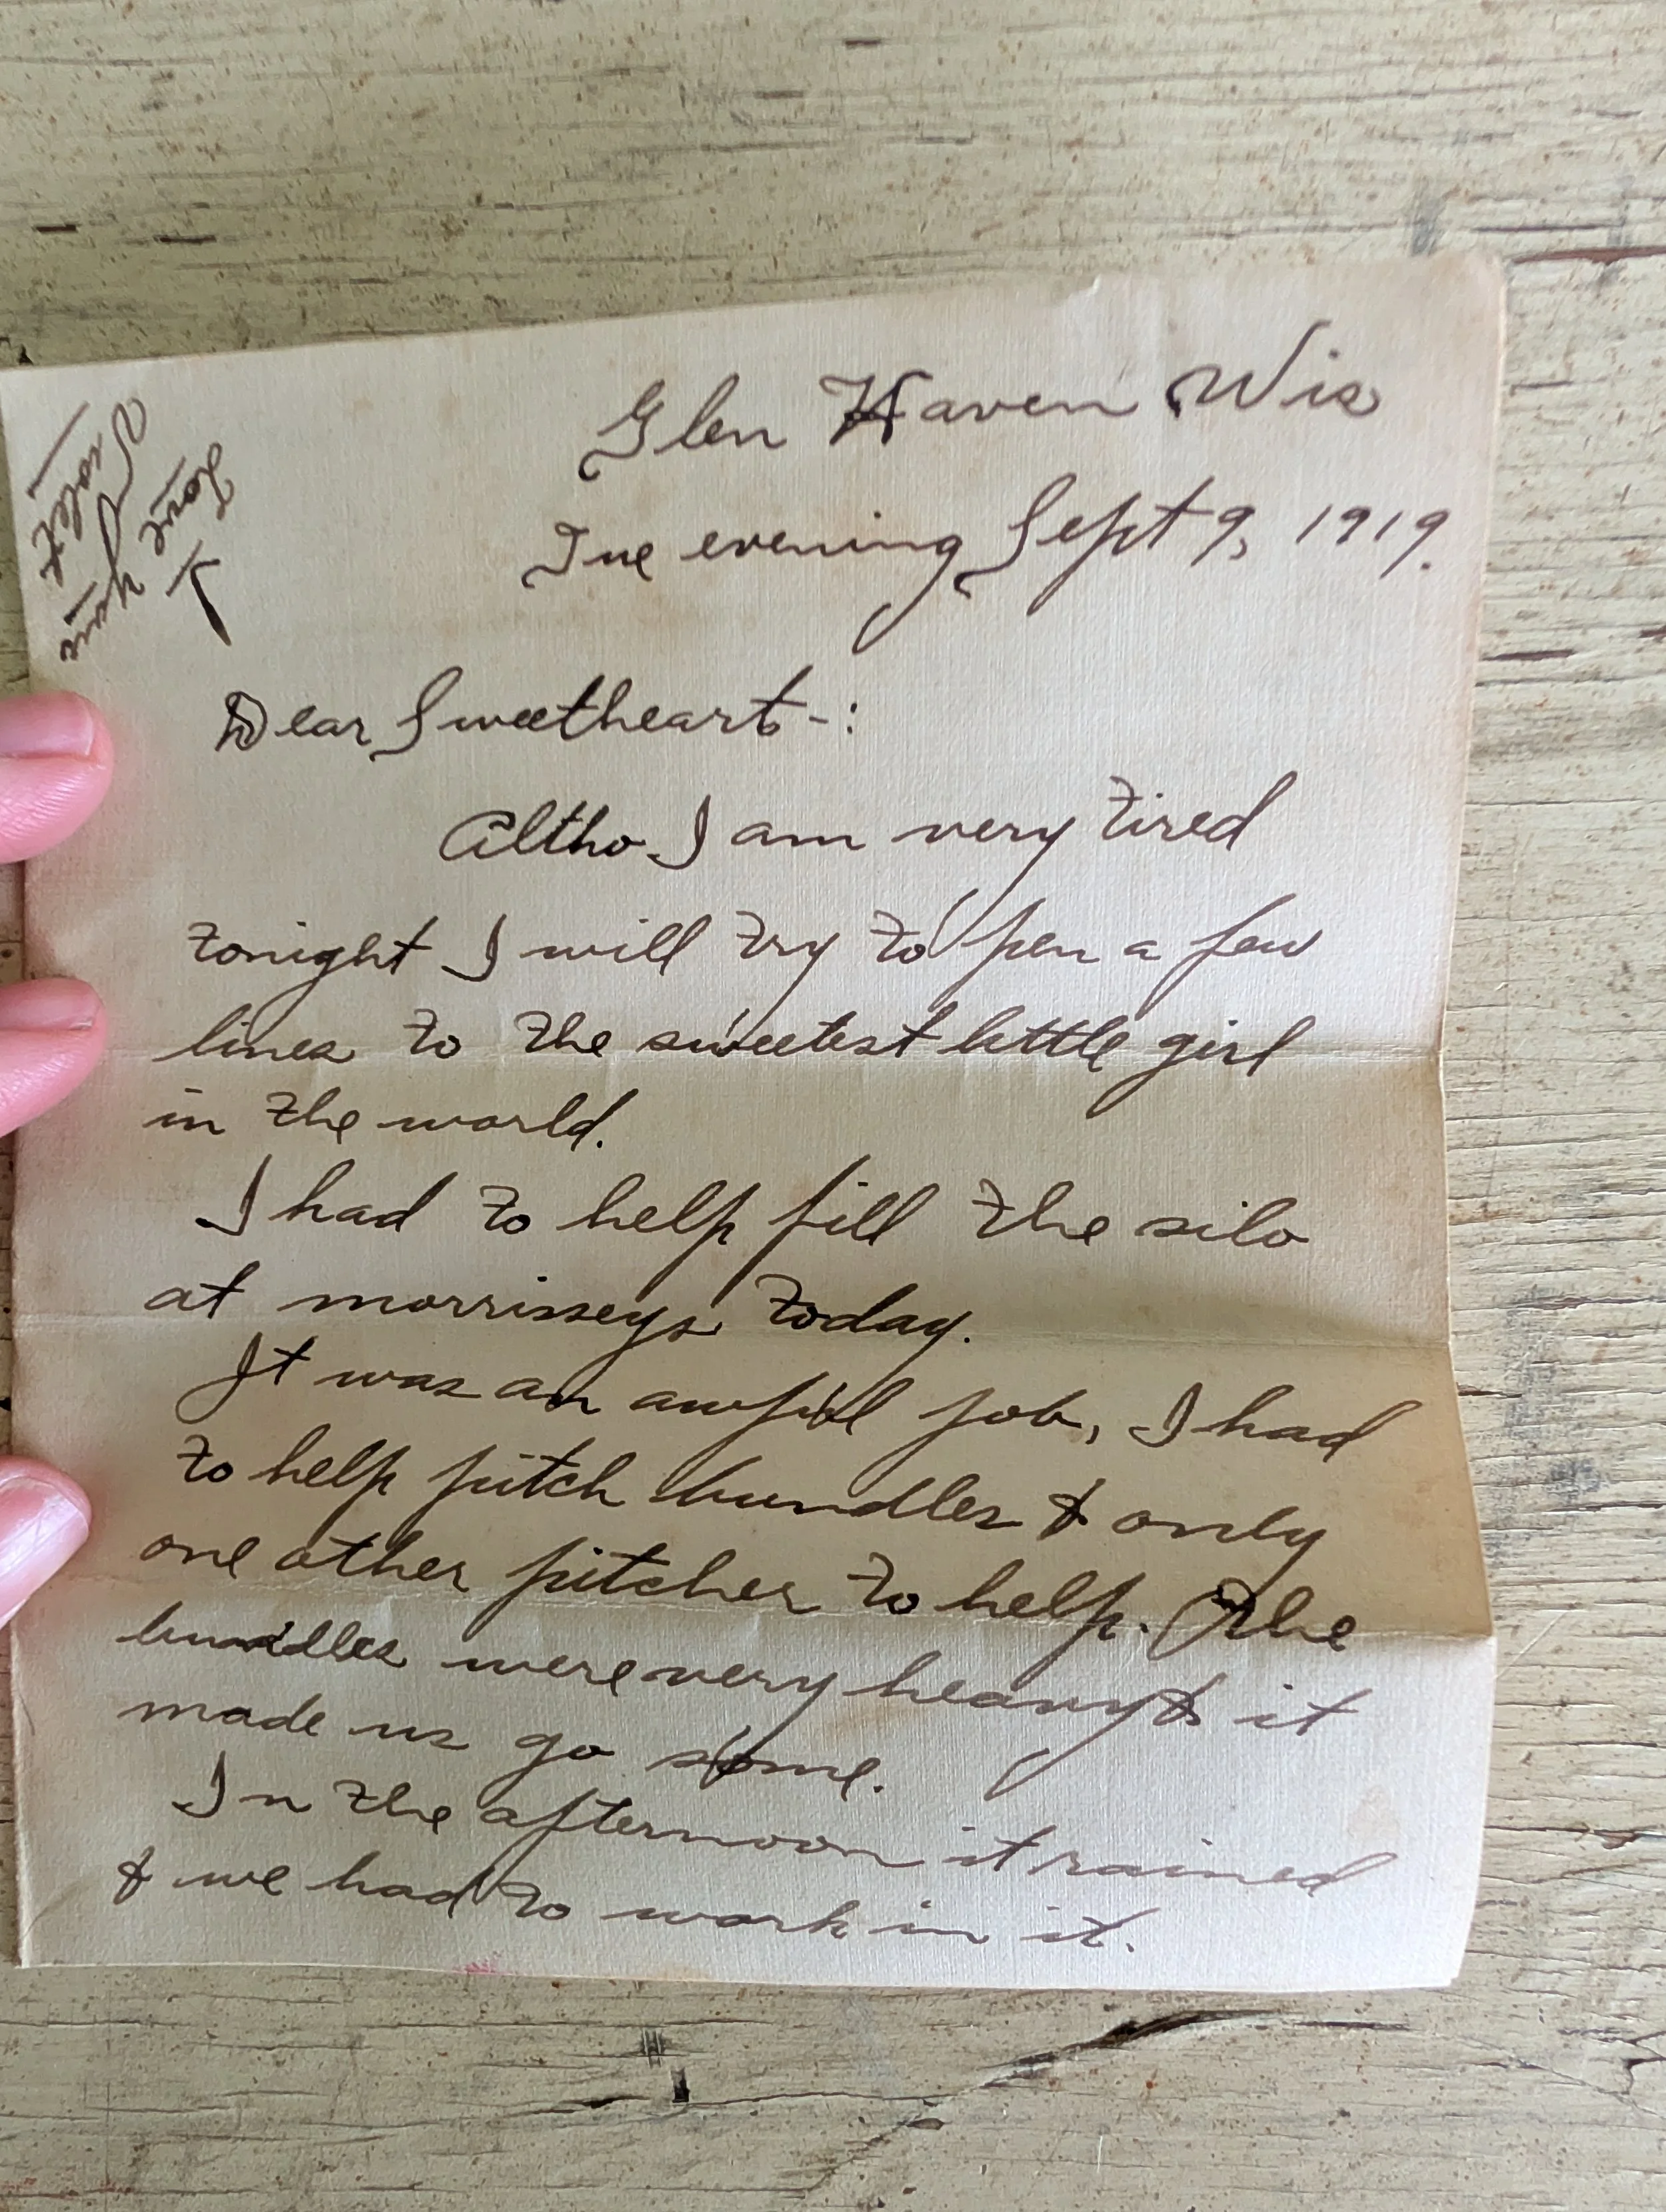 Glen Haven Wis
Tue evening Sept 9, 1919.
Dear Sweetheart-:
Altho I am very tired
tonight I will try to pen a few
lines to the sweetest little girl
in the world.
I had to help fill the silo
at morrisseys today.
It was an awful job, I had
to help pitch bundles & only
one other pitcher to help. The
bundles were very heavy & it
made us go some.
In the afternoon it rained
& we had to work in it.
I
Love
your
Violet